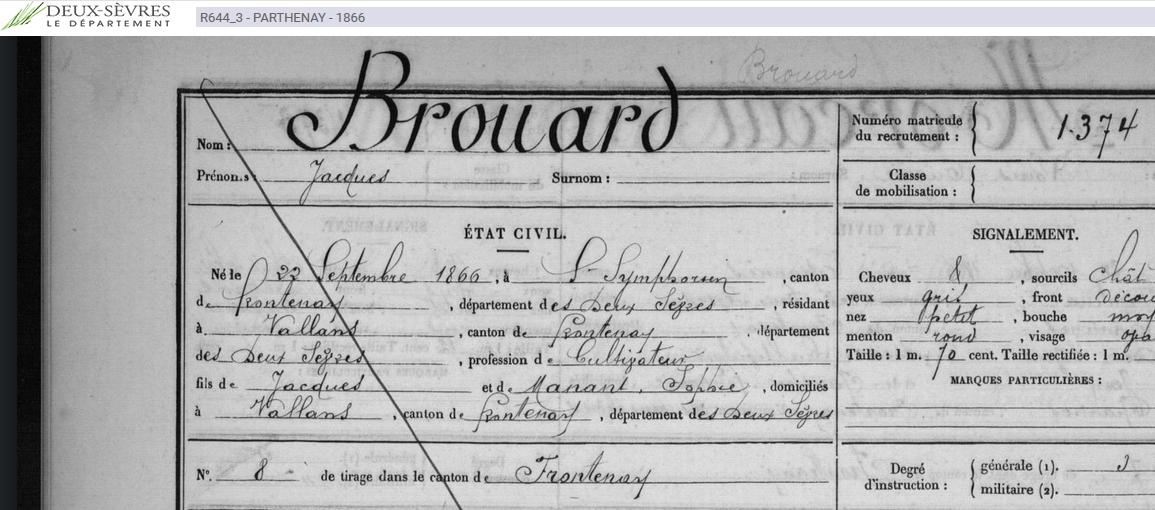 DEUX-SÈVRES
LE DÉPARTEMENT
R644_3 - PARTHENAY - 1866
Brouard
Nom : Brouard
Prénoms : Jacques Surnom :
ÉTAT CIVIL.
Né le 22 Septembre 1866, à St Symphorien, canton
de Frontenay, département des Deux Sèvres, résidant
à Vallans, canton de Frontenay, département
des Deux Sèvres, profession de Cultivateur
fils de Jacques et de Manant, Sophie, domiciliés
à Vallans, canton de Frontenay, département des Deux Sèvres
N° 8 de tirage dans le canton de Frontenay
Numéro matricule
du recrutement : 1.374
Classe
de mobilisation :
SIGNALEMENT.
Cheveux &, sourcils chât
yeux gris, front décou
nez petit, bouche moy
menton rond, visage
Taille : 1 m. 70 cent. Taille rectifiée : 1 m.
MARQUES PARTICULIÈRES :
Degré
d'instruction :
générale (1). 3
militaire (2).